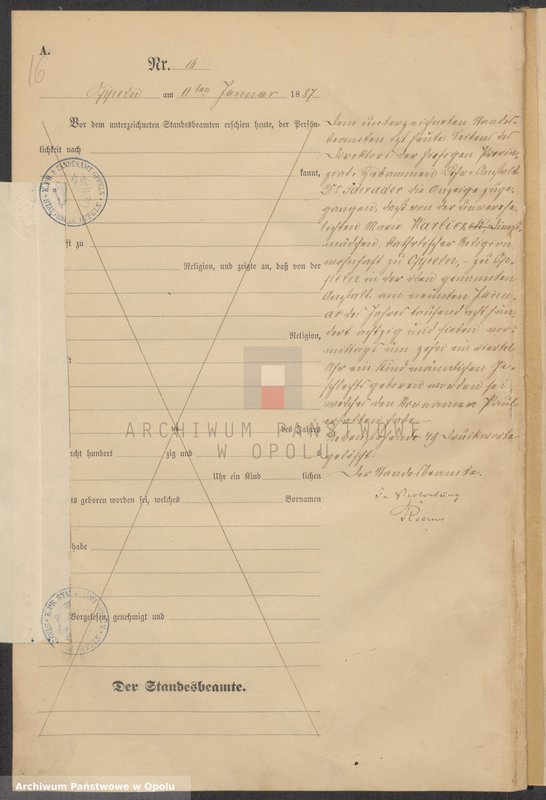 A.
16
Nr. 16
Oppeln am 11ten Januar 1887
Vor dem unterzeichneten Standesbeamten erschien heute, der Persön-
lichkeit nach
kannt,
st zu
Religion, und zeigte an, daß von der
Religion,
des Jahres
acht hundert zig und
Uhr ein Kind lichen
ts geboren worden sei, welches Vornamen
habe
Vorgelesen, genehmigt und
Der Standesbeamte.
Dem unterzeichneten Standes-
beamten ist heute Seitens des
Direktors der hiesigen Provin-
zial Hebammen Lehr-Anstalt
Dr. Schrader die Anzeige zuge-
gangen, daß von der unverehe-
lichten Marie Dienst-
mädchen, katholischer Religion
wohnhaft zu Oppeln, zu Op-
peln in der oben genannten
Anstalt am neunten Janu-
ar des Jahres tausend acht hun-
dert achtzig und sieben vor-
mittags um zehn ein viertel
Uhr ein Kind männlichen Ge-
schlechts geboren worden sei,
welches den Vornamen Paul
erhalten habe.
Vorstehende 49 Druckworte
gelöscht.
Der Standesbeamte.
In Vertretung
ARCHIWUM PAŃSTWOWE
W OPOLU
Archiwum Państwowe w Opolu